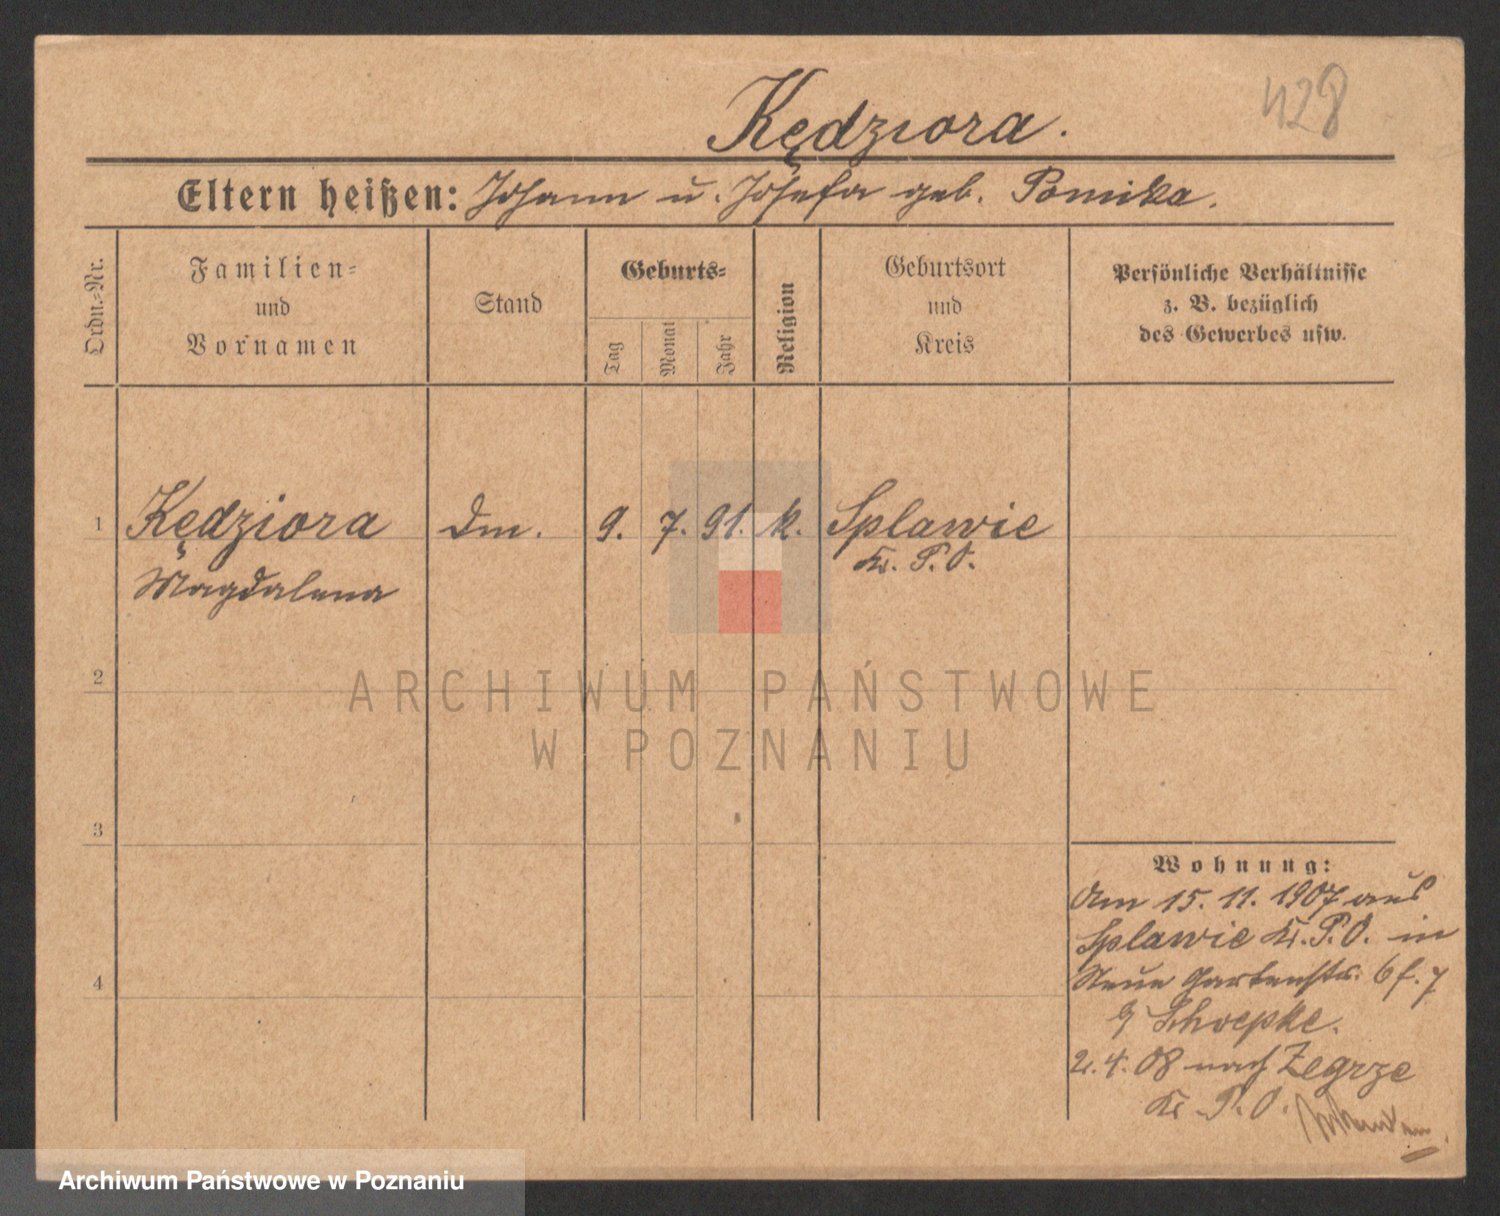 428
Kędziora.
Eltern heißen: Johann u. Josefa geb. Pomika.
Ordn.-Nr.
Familien-
und
Vornamen
Stand
Geburts-
Tag
Monat
Jahr
Religion
Geburtsort
und
Kreis
Persönliche Verhältnisse
z. B. bezüglich
des Gewerbes usw.
1 Kędziora Dm. 9. 7. 91. k. Splawie
Magdalena Kr. P. O.
2
3
4
Wohnung:
Am 15. 11. 1907 aus
Splawie Kr. P. O. in
Neue Gartenstr. 6
Schoepke.
2. 4. 08 nach Zegrze
Kr. P. O.
ARCHIWUM PAŃSTWOWE
W POZNANIU
Archiwum Państwowe w Poznaniu